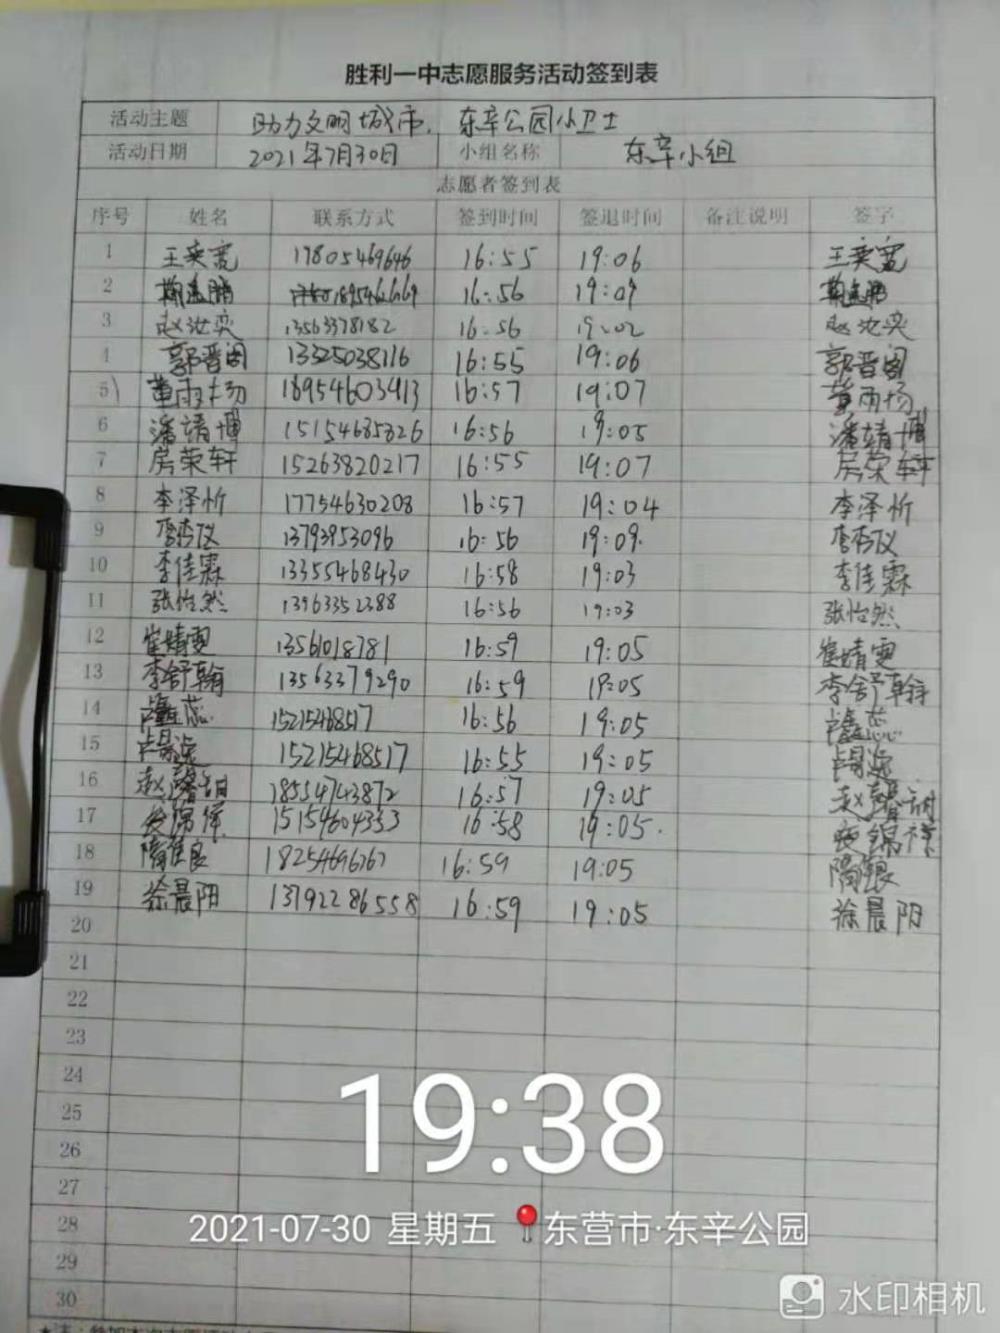 胜利一中志愿服务活动签到表
活动主题 助力文明城市，东辛公园小卫士
活动日期 2021年7月30日 小组名称 东辛小组
志愿者签到表
序号 姓名 联系方式 签到时间 签退时间 备注说明 签字
1 王奕宽 17805469646 16:55 19:06 王奕宽
2 16:56 19:07
3 13563378182 16:56 19:02
4 郭晋阁 13325038116 16:55 19:06 郭晋阁
5 董雨扬 18954603913 16:57 19:07 董雨扬
6 潘靖博 15154635826 16:56 19:05 潘靖博
7 房荣轩 15263820217 16:55 19:07 房荣轩
8 李泽忻 17754630208 16:57 19:04 李泽忻
9 13793953096 16:56 19:09
10 李佳霖 13355468430 16:58 19:03 李佳霖
11 张怡然 13963352388 16:56 19:03 张怡然
12 崔婧雯 13561018781 16:59 19:05 崔婧雯
13 李舒翰 13563379290 16:59 19:05 李舒翰
14 15215468517 16:56 19:05
15 15215468517 16:55 19:05
16 赵 18554743872 16:57 19:05 赵
17 15154604333 16:58 19:05
18 18254696767 16:59 19:05
19 徐晨阳 13792286558 16:59 19:05 徐晨阳
20
21
22
23
24
25
26
27
28
29
30
19:38
2021-07-30 星期五 东营市·东辛公园
水印相机